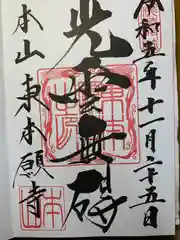 令和五年十一月二十五日
光雲無碍
本山東本願寺